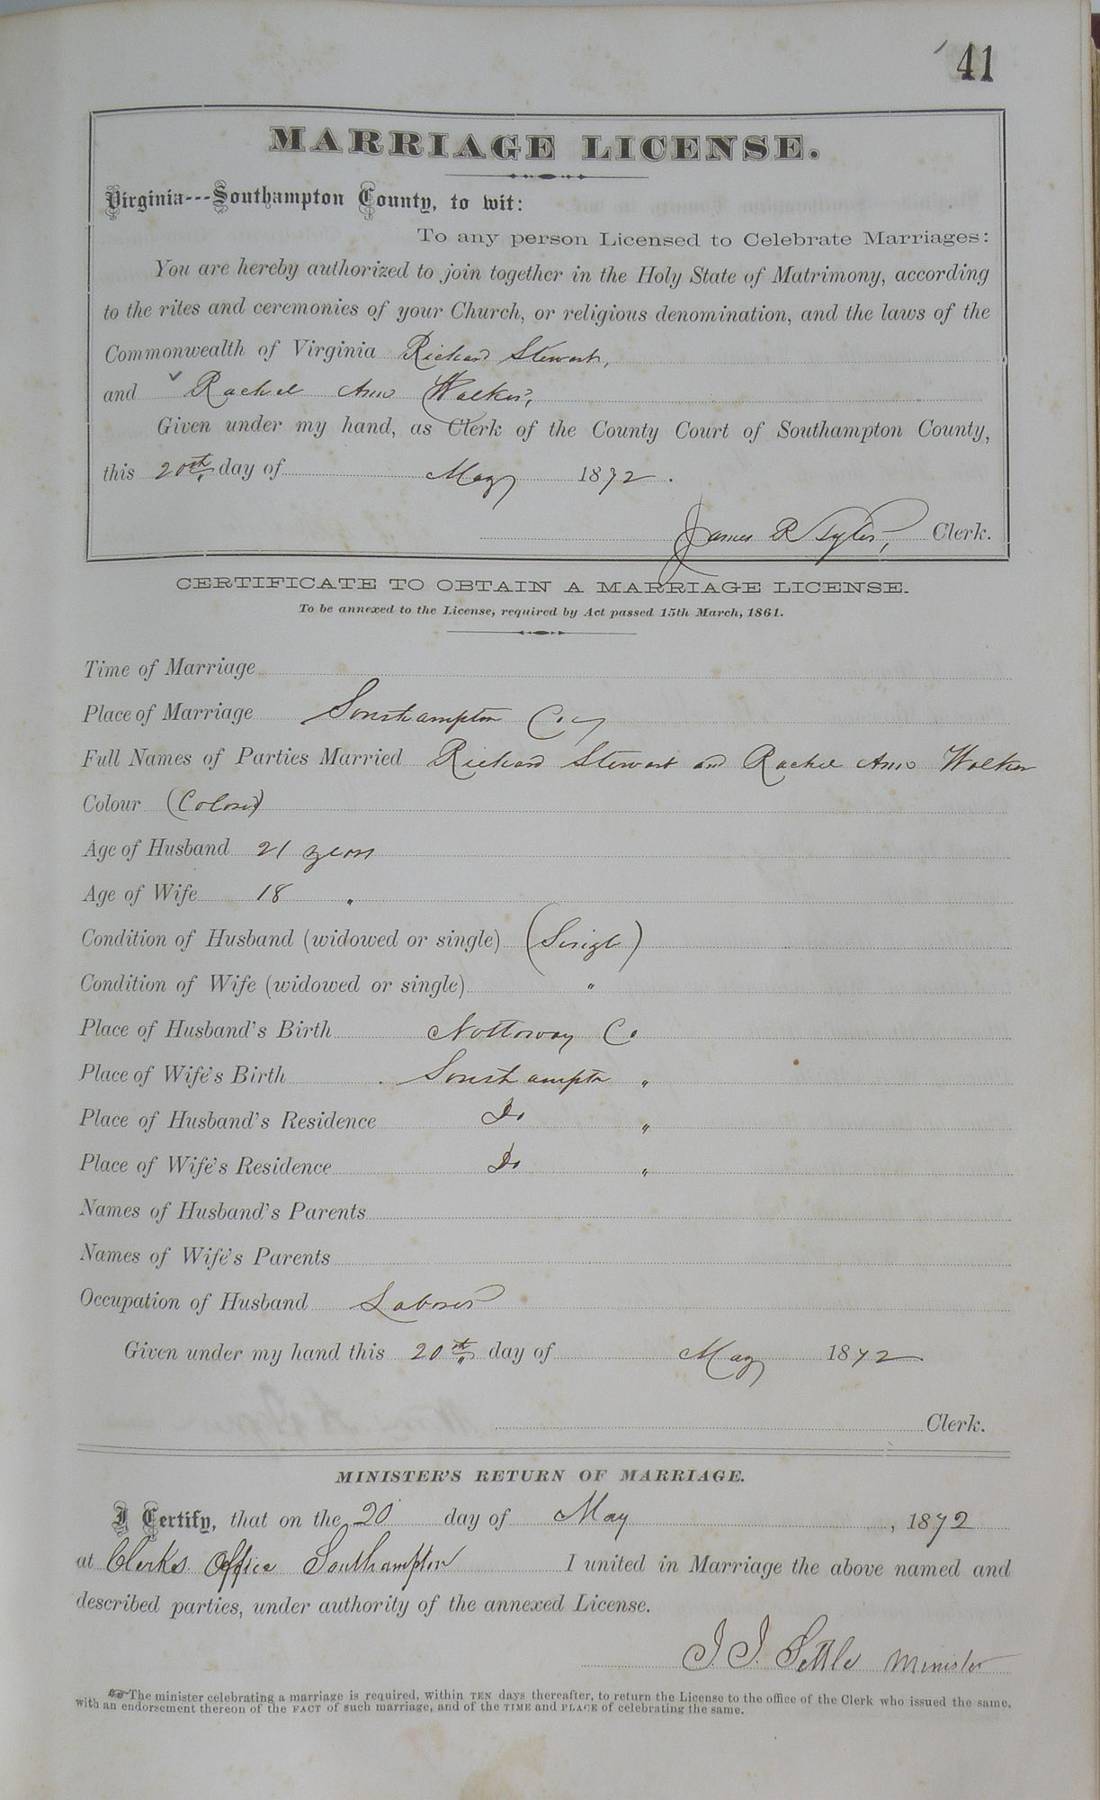 41
MARRIAGE LICENSE.
Virginia---Southampton County, to wit:
To any person Licensed to Celebrate Marriages:
You are hereby authorized to join together in the Holy State of Matrimony, according
to the rites and ceremonies of your Church, or religious denomination, and the laws of the
Commonwealth of Virginia Richard Stewart,
and Rachel Ann Walker,
Given under my hand, as Clerk of the County Court of Southampton County,
this 20th day of May 1872.
James R Tyler, Clerk.
CERTIFICATE TO OBTAIN A MARRIAGE LICENSE.
To be annexed to the License, required by Act passed 15th March, 1861.
Time of Marriage
Place of Marriage Southampton Cy
Full Names of Parties Married Richard Stewart and Rachel Ann Walker
Colour (Colored)
Age of Husband 21 years
Age of Wife 18 "
Condition of Husband (widowed or single) (Single)
Condition of Wife (widowed or single) "
Place of Husband's Birth Nottoway Co
Place of Wife's Birth Southampton "
Place of Husband's Residence Do "
Place of Wife's Residence Do "
Names of Husband's Parents
Names of Wife's Parents
Occupation of Husband Laborer
Given under my hand this 20th day of May 1872
Clerk.
MINISTER'S RETURN OF MARRIAGE.
I Certify, that on the 20 day of May, 1872
at Clerks Office Southampton I united in Marriage the above named and
described parties, under authority of the annexed License.
J. J. Settle Minister
☞ The minister celebrating a marriage is required, within TEN days thereafter, to return the License to the office of the Clerk who issued the same,
with an endorsement thereon of the FACT of such marriage, and of the TIME and PLACE of celebrating the same.